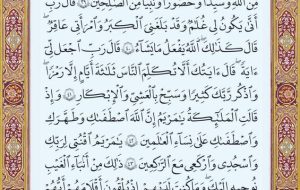 مِّنَ ٱللَّهِ وَسَيِّدًا وَحَصُورًا وَنَبِيًّا مِّنَ ٱلصَّٰلِحِينَ ٣٩ قَالَ رَبِّ
أَنَّىٰ يَكُونُ لِي غُلَٰمٌ وَقَدْ بَلَغَنِيَ ٱلْكِبَرُ وَٱمْرَأَتِي عَاقِرٌ
قَالَ كَذَٰلِكَ ٱللَّهُ يَفْعَلُ مَا يَشَآءُ ٤٠ قَالَ رَبِّ ٱجْعَل لِّيٓ
ءَايَةً قَالَ ءَايَتُكَ أَلَّا تُكَلِّمَ ٱلنَّاسَ ثَلَٰثَةَ أَيَّامٍ إِلَّا رَمْزًا
وَٱذْكُر رَّبَّكَ كَثِيرًا وَسَبِّحْ بِٱلْعَشِيِّ وَٱلْإِبْكَٰرِ ٤١ وَإِذْ
قَالَتِ ٱلْمَلَٰٓئِكَةُ يَٰمَرْيَمُ إِنَّ ٱللَّهَ ٱصْطَفَىٰكِ وَطَهَّرَكِ
وَٱصْطَفَىٰكِ عَلَىٰ نِسَآءِ ٱلْعَٰلَمِينَ ٤٢ يَٰمَرْيَمُ ٱقْنُتِي لِرَبِّكِ
وَٱسْجُدِي وَٱرْكَعِي مَعَ ٱلرَّٰكِعِينَ ٤٣ ذَٰلِكَ مِنْ أَنۢبَآءِ ٱلْغَيْبِ
نُوحِيهِ إِلَيْكَ وَمَا كُنتَ لَدَيْهِمْ إِذْ يُلْقُونَ أَقْلَٰمَهُمْ أَيُّهُمْ